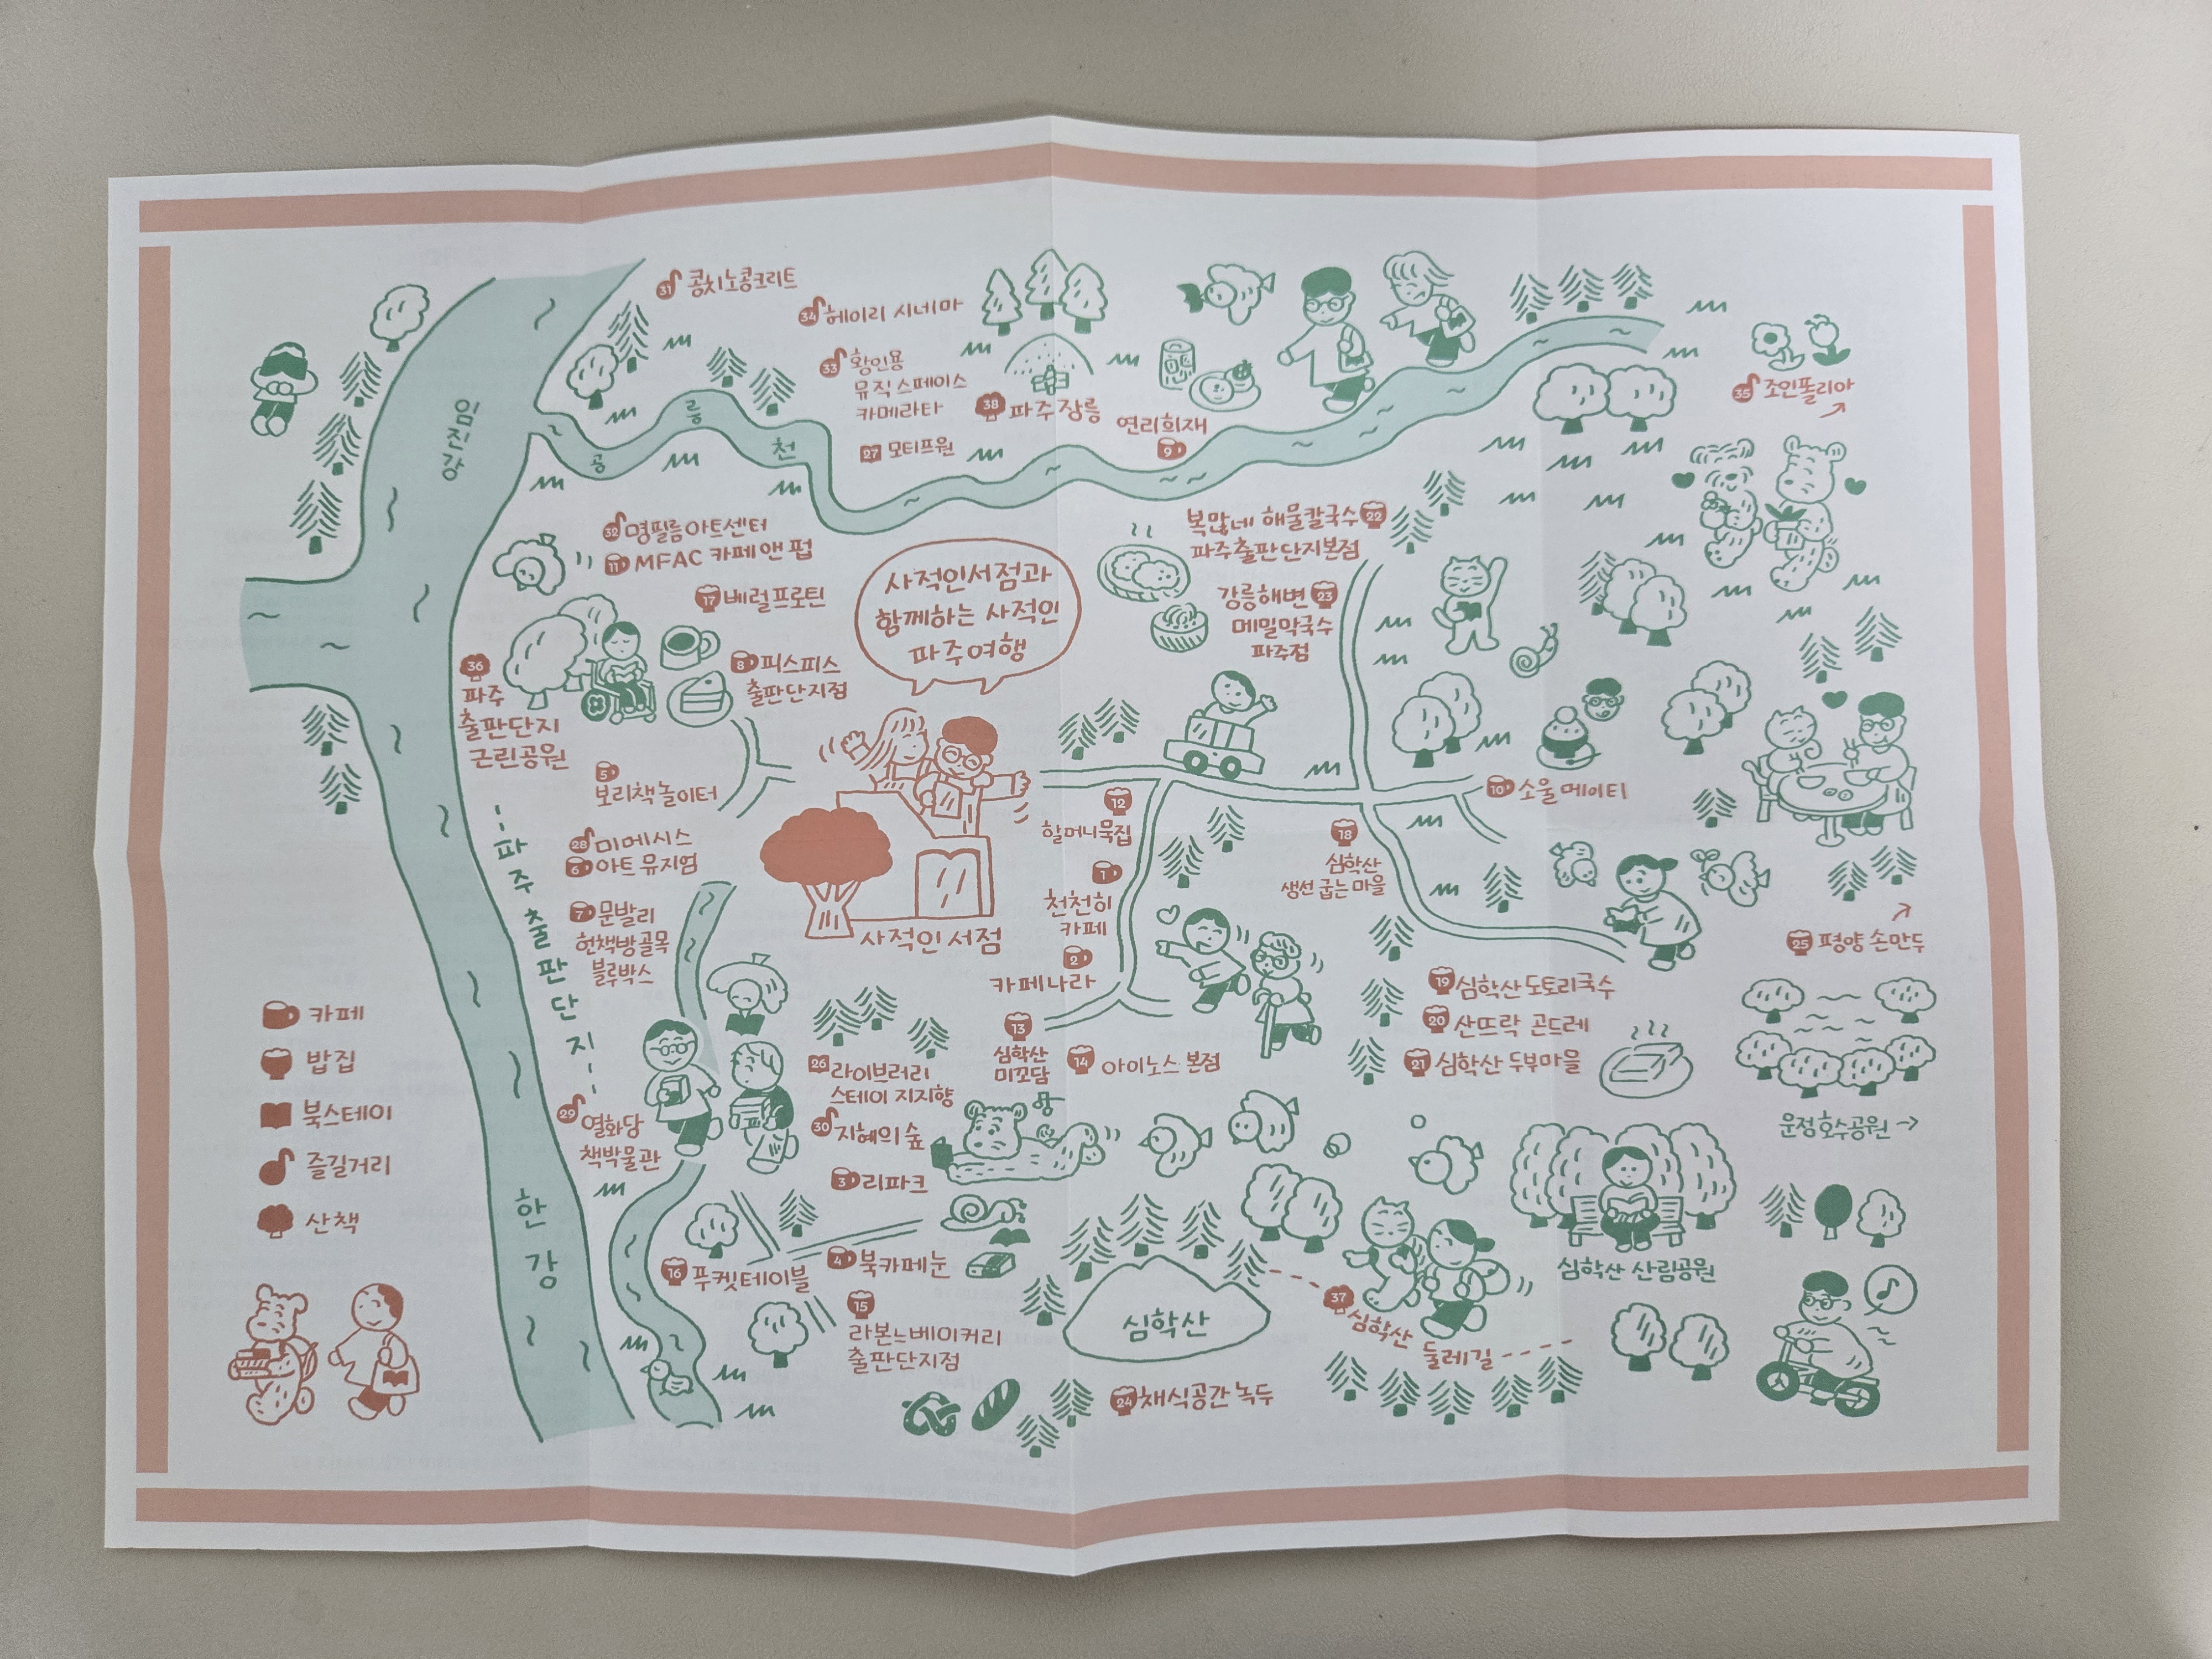 31 콩치노콩크리트
34 헤이리 시네마
33 황인용
뮤직 스페이스
카메라타
38 파주 장릉
27 모티프원
연리희재
9
35 조인폴리아
임진강
공릉천
32 명필름아트센터
11 MFAC 카페 앤 펍
17 베럴프로틴
8 피스피스
출판단지점
36
파주
출판단지
근린공원
사적인서점과
함께하는 사적인
파주여행
복많네 해물칼국수 22
파주출판단지본점
강릉해변 23
메밀막국수
파주점
5
보리책놀이터
28 미메시스
6 아트 뮤지엄
7 문발리
헌책방골목
블루박스
사적인서점
12
할머니묵집
1
천천히
카페
2
카페나라
18
심학산
생선 굽는 마을
10 소울메이티
25 평양 손만두
19 심학산도토리국수
20 산뜨락 곤드레
21 심학산 두부마을
13
심학산
미꼬담
14 아이노스 본점
26 라이브러리
스테이 지지향
30 지혜의 숲
3 리파크
29 열화당
책박물관
파주출판단지
한강
16 푸켓테이블
4 북카페눈
15
라본느베이커리
출판단지점
심학산
24 채식공간 녹두
37 심학산
둘레길
심학산 산림공원
운정호수공원 →
카페
밥집
북스테이
즐길거리
산책